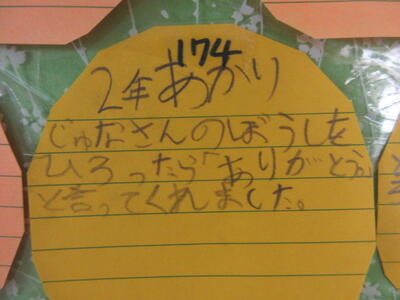 174
2年あかり
じゅなさんのぼうしを
ひろったら「ありがとう」
と言ってくれました。